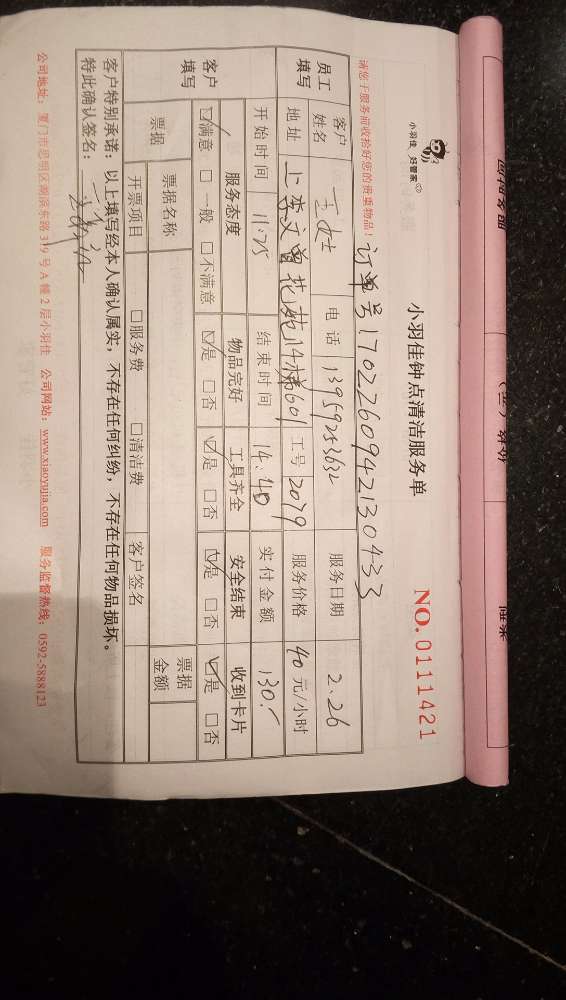 小羽佳 好管家
小羽佳钟点清洁服务单
NO. 0111421
请您于服务前收拾好您的贵重物品！
订单号1702260942130433
员工填写
客户姓名 王女士 电话 13959253632 服务日期 2.26
地址 上李文曾花苑14栋601 工号 2079 服务价格 40 元/小时
开始时间 11.25 结束时间 14.40 实付金额 130.
客户填写
服务态度 物品完好 工具齐全 安全结束 收到卡片
☑满意 □一般 □不满意 ☑是 □否 ☑是 □否 ☑是 □否 ☑是 □否
票据
票据名称 票据金额
开票项目 □服务费 □清洁费 客户签名
客户特别承诺：以上填写经本人确认属实，不存在任何纠纷，不存在任何物品损坏。
特此确认签名：
公司地址：厦门市思明区湖滨东路319号A幢2层小羽佳 公司网站：www.xiaoyujia.com 服务监督热线：0592-5888123